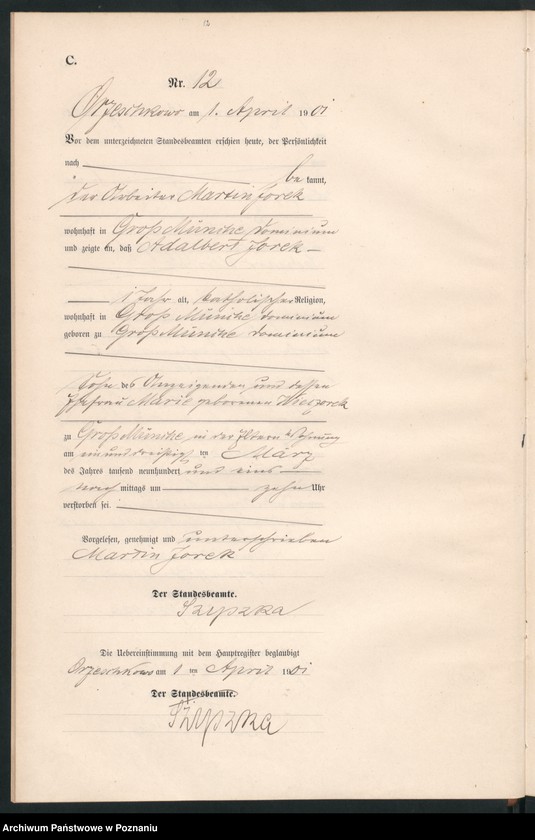 C.
Nr. 12
Orzeschkowo am 1. April 1901
Vor dem unterzeichneten Standesbeamten erschien heute, der Persönlichkeit
nach
be kannt,
der Arbeiter Martin Jorek
wohnhaft in Groß Münche Dominium
und zeigte an, daß Adalbert Jorek
1 Jahr alt, katholischer Religion,
wohnhaft in Groß Münche Dominium
geboren zu Groß Münche Dominium
Sohn des Anzeigenden und dessen
Ehefrau Marie geborenen
zu Groß Münche in der Eltern Wohnung
am ein und dreißigsten März
des Jahres tausend neunhundert und eins
nach mittags um zehn Uhr
verstorben sei.
Vorgelesen, genehmigt und unterschrieben
Martin Jorek
Der Standesbeamte.
Szypzka
Die Uebereinstimmung mit dem Hauptregister beglaubigt
Orzeschkowo am 1 ten April 1901
Der Standesbeamte.
Szypzka
Archiwum Państwowe w Poznaniu